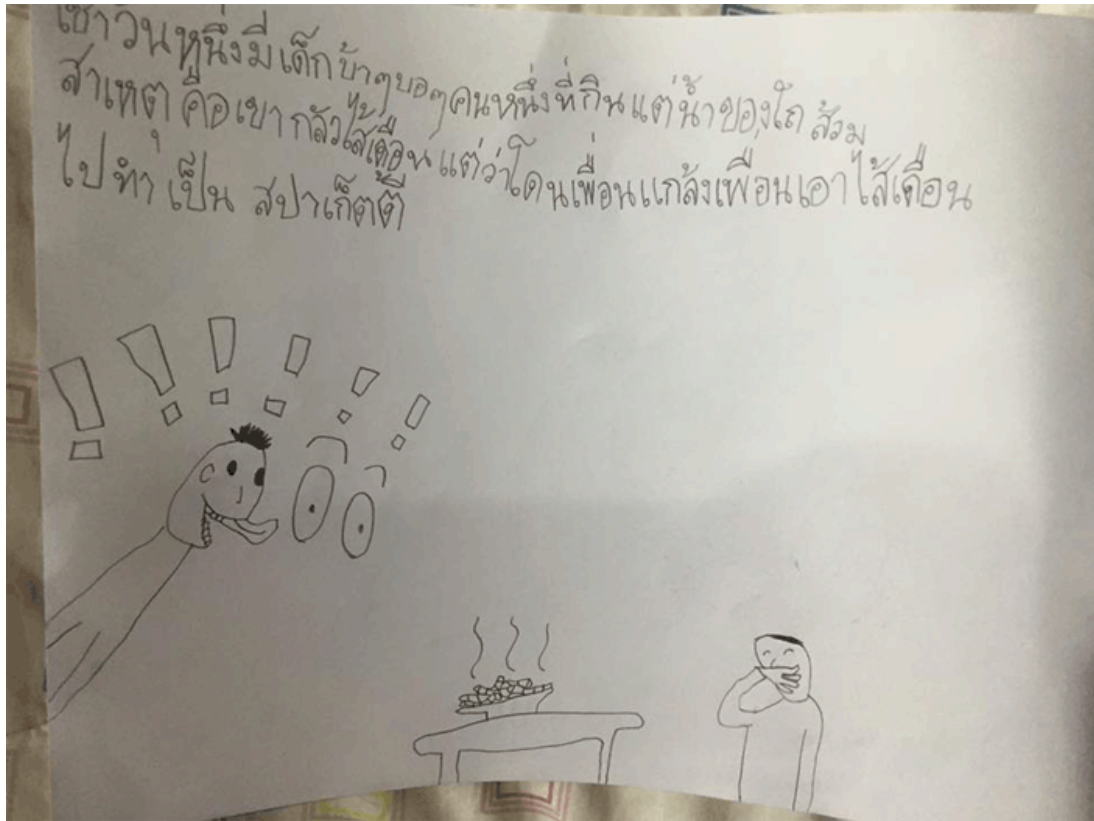 เช้าวันหนึ่งมีเด็กบ้าๆบอๆคนหนึ่งที่กินแต่น้ำของโถส้วม
สาเหตุ คือเขากลัวไส้เดือนแต่ว่าโดนเพื่อนแกล้งเพื่อนเอาไส้เดือน
ไปทำเป็น สปาเก็ตตี้